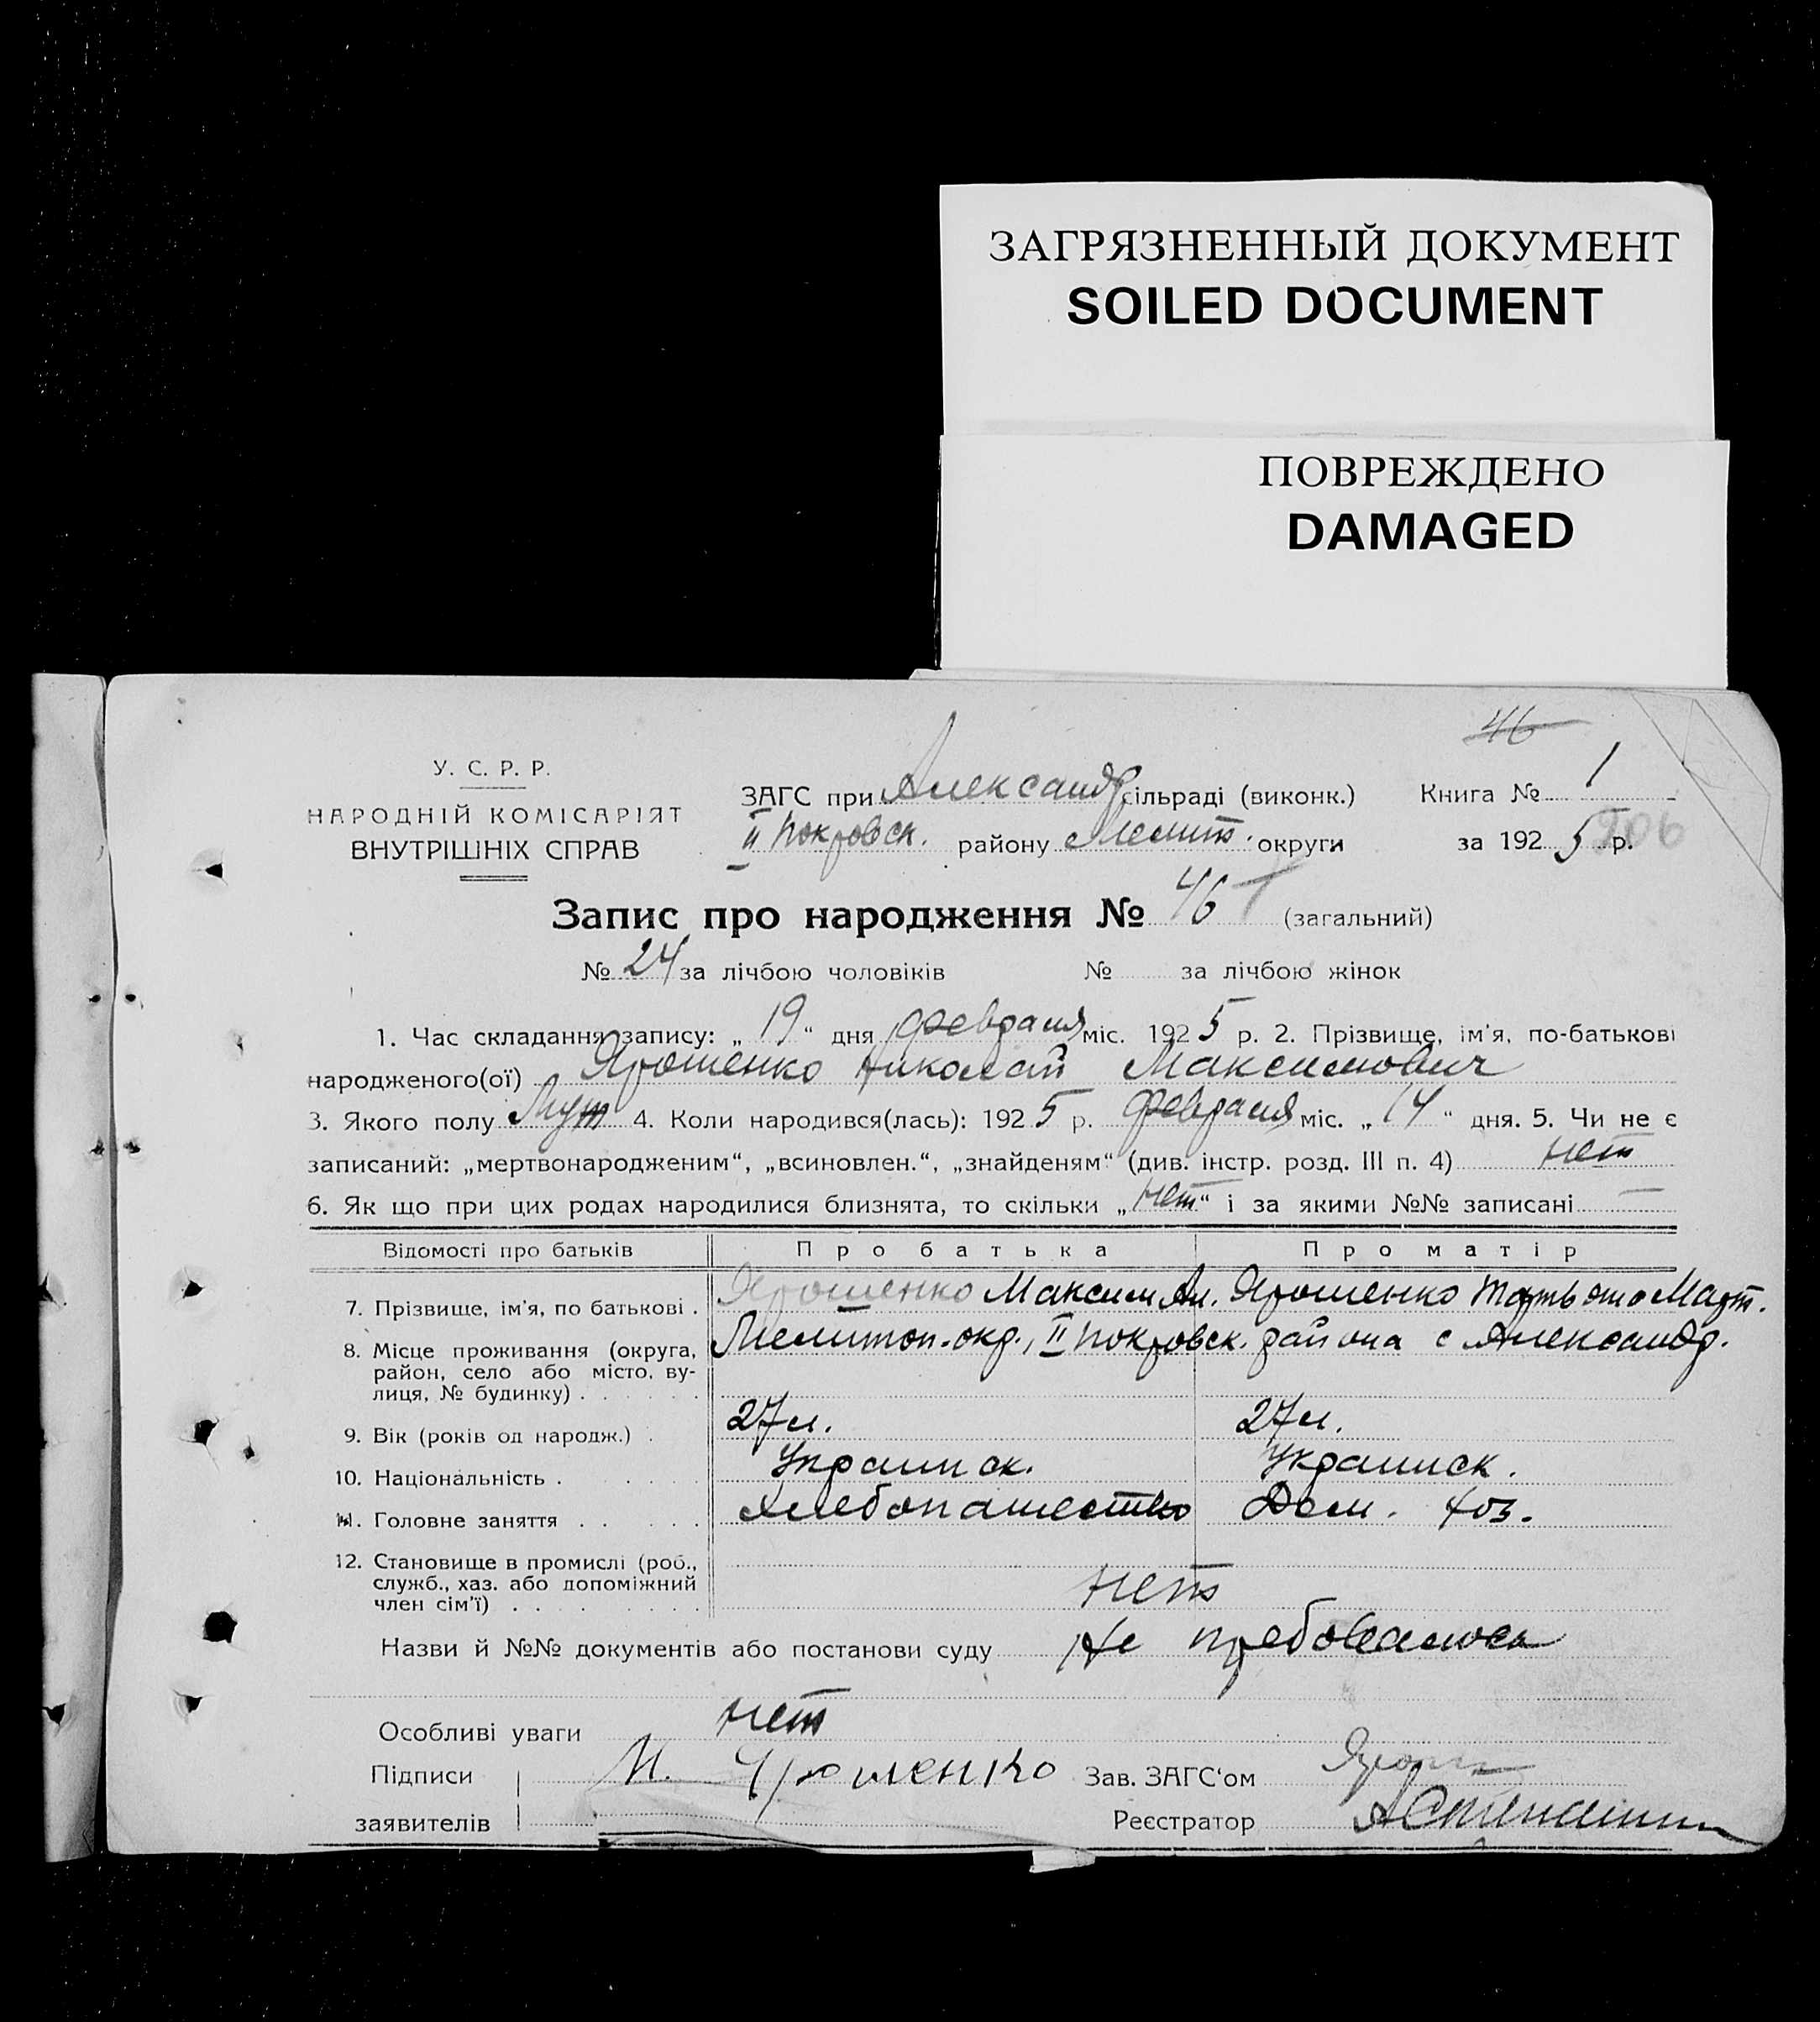 ЗАГРЯЗНЕННЫЙ ДОКУМЕНТ
SOILED DOCUMENT
ПОВРЕЖДЕНО
DAMAGED
46
У. С. Р. Р.
НАРОДНІЙ КОМІСАРІЯТ
ВНУТРІШНІХ СПРАВ
ЗАГС при Александр сільраді (виконк.) Книга № 1
II Покровск. району Мелит. округи за 192 5 р.
Запис про народження № 46 (загальний)
№ 24 за лічбою чоловіків № за лічбою жінок
1. Час складання запису: „ 19 “ дня февраля міс. 192 5 р. 2. Прізвище, ім'я, по-батькові
народженого(ої) Ярошенко Николай Максимович
3. Якого полу Муж 4. Коли народився(лась): 192 5 р. февраля міс. „ 14 “ дня. 5. Чи не є
записаний: „мертвонародженим“, „всиновлен.“, „знайденям“ (див. інстр. розд. III п. 4) нет
6. Як що при цих родах народилися близнята, то скільки „ нет “ і за якими №№ записані —
Відомості про батьків Про батька Про матір
7. Прізвище, ім'я, по батькові . Ярошенко Максим Ал. Ярошенко Татьяна Март.
8. Місце проживання (округа, район, село або місто, вулиця, № будинку) . Мелитоп. окр., II Покровск. района с Александр.
9. Вік (років од народж.) . 27 л. 27 л.
10. Національність . Украинск. Украинск.
11. Головне заняття . Хлебопашество Дом. хоз.
12. Становище в промислі (роб., служб., хаз. або допоміжний член сім'ї) . нет
Назви й №№ документів або постанови суду Не требовалось
Особливі уваги нет
Підписи М. Ярошенко Зав. ЗАГС‘ом
заявителів Реєстратор